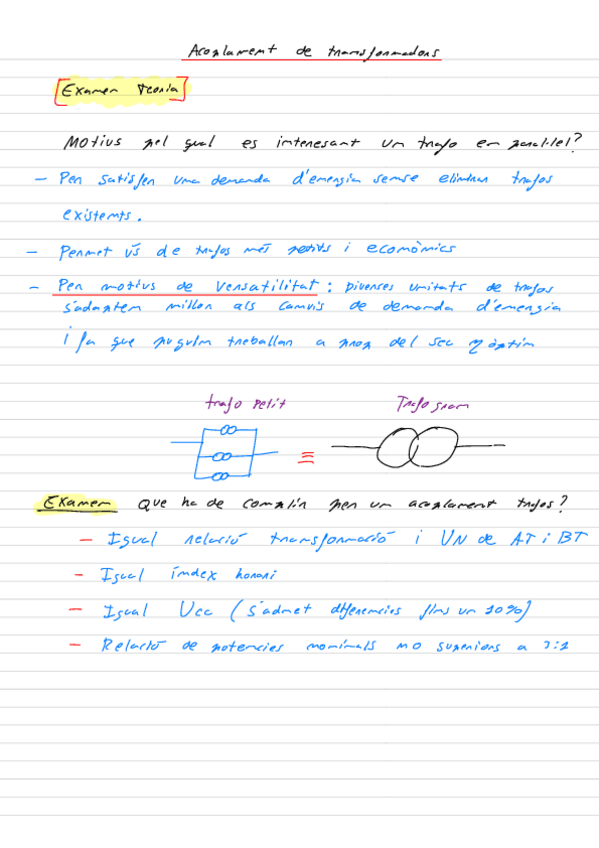 Acoplament de transformadors
Examen teoria
Motius pel qual es interesant un trafo en paral·lel?
- Per satisfer una demanda d'energia sense eliminar trafos
existents.
- Permet ús de trafos més petits i econòmics
- Per motius de versatilitat: Diverses unitats de trafos
s'adapten millor als canvis de demanda d'energia
i fa que puguin treballar a prop del seu η òptim
trafo petit
Trafo gran
≡
Examen Que ha de complir per un acoplament trafos?
- Igual relació transformació i UN de AT i BT
- Igual índex horari
- Igual Ucc (s'admet diferencies fins un 10%)
- Relació de potencies nominals no superiors a